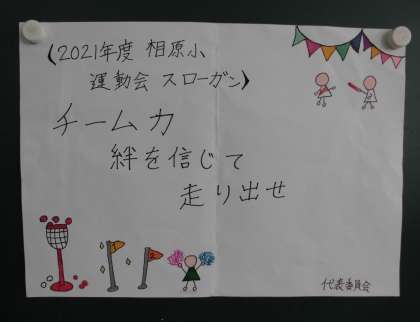 (2021年度 相原小
運動会 スローガン)
チーム力
絆を信じて
走り出せ
代表委員会